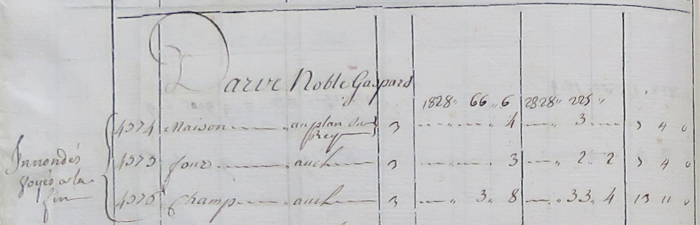 Darve Noble Gaspard
1828 „ 66 „ 6 2828 „ 225 „
4374 Maison au plan du Prey 3 „ 4 „ 3 3 4 0
Innondés
voyés a la
fin
4375 four auch 3 „ 3 „ 2 „ 2 3 4 0
4376 Champ auch 3 „ 3 „ 8 „ 33 „ 4 13 11 0